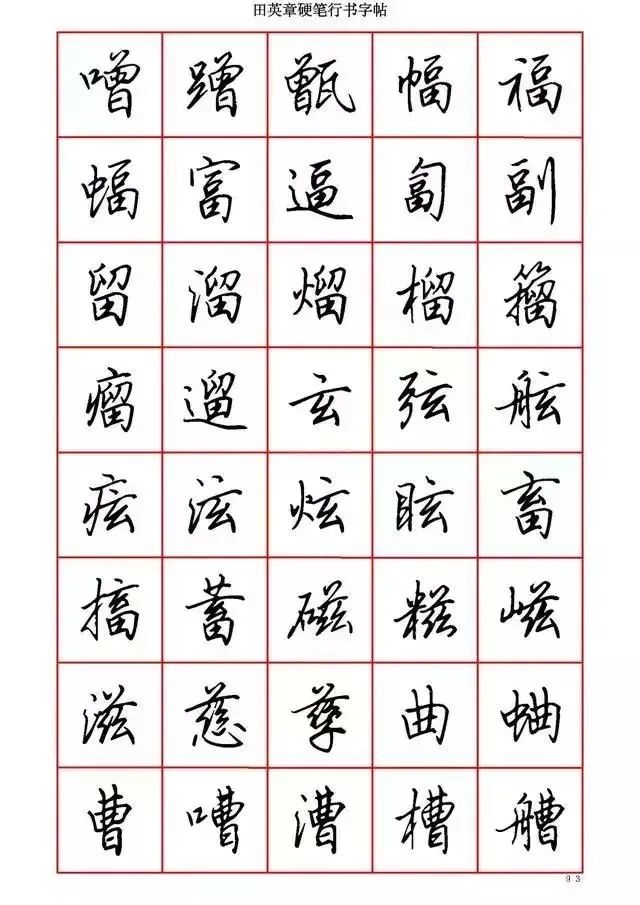 田英章硬笔行书字帖
噌 蹭 甑 幅 福
蝠 富 逼 匐 副
留 溜 熘 榴 籀
瘤 遛 玄 弦 舷
痃 泫 炫 眩 畜
搐 蓄 磁 糍 嵫
滋 慈 孳 曲 蛐
曹 嘈 漕 槽 艚
93